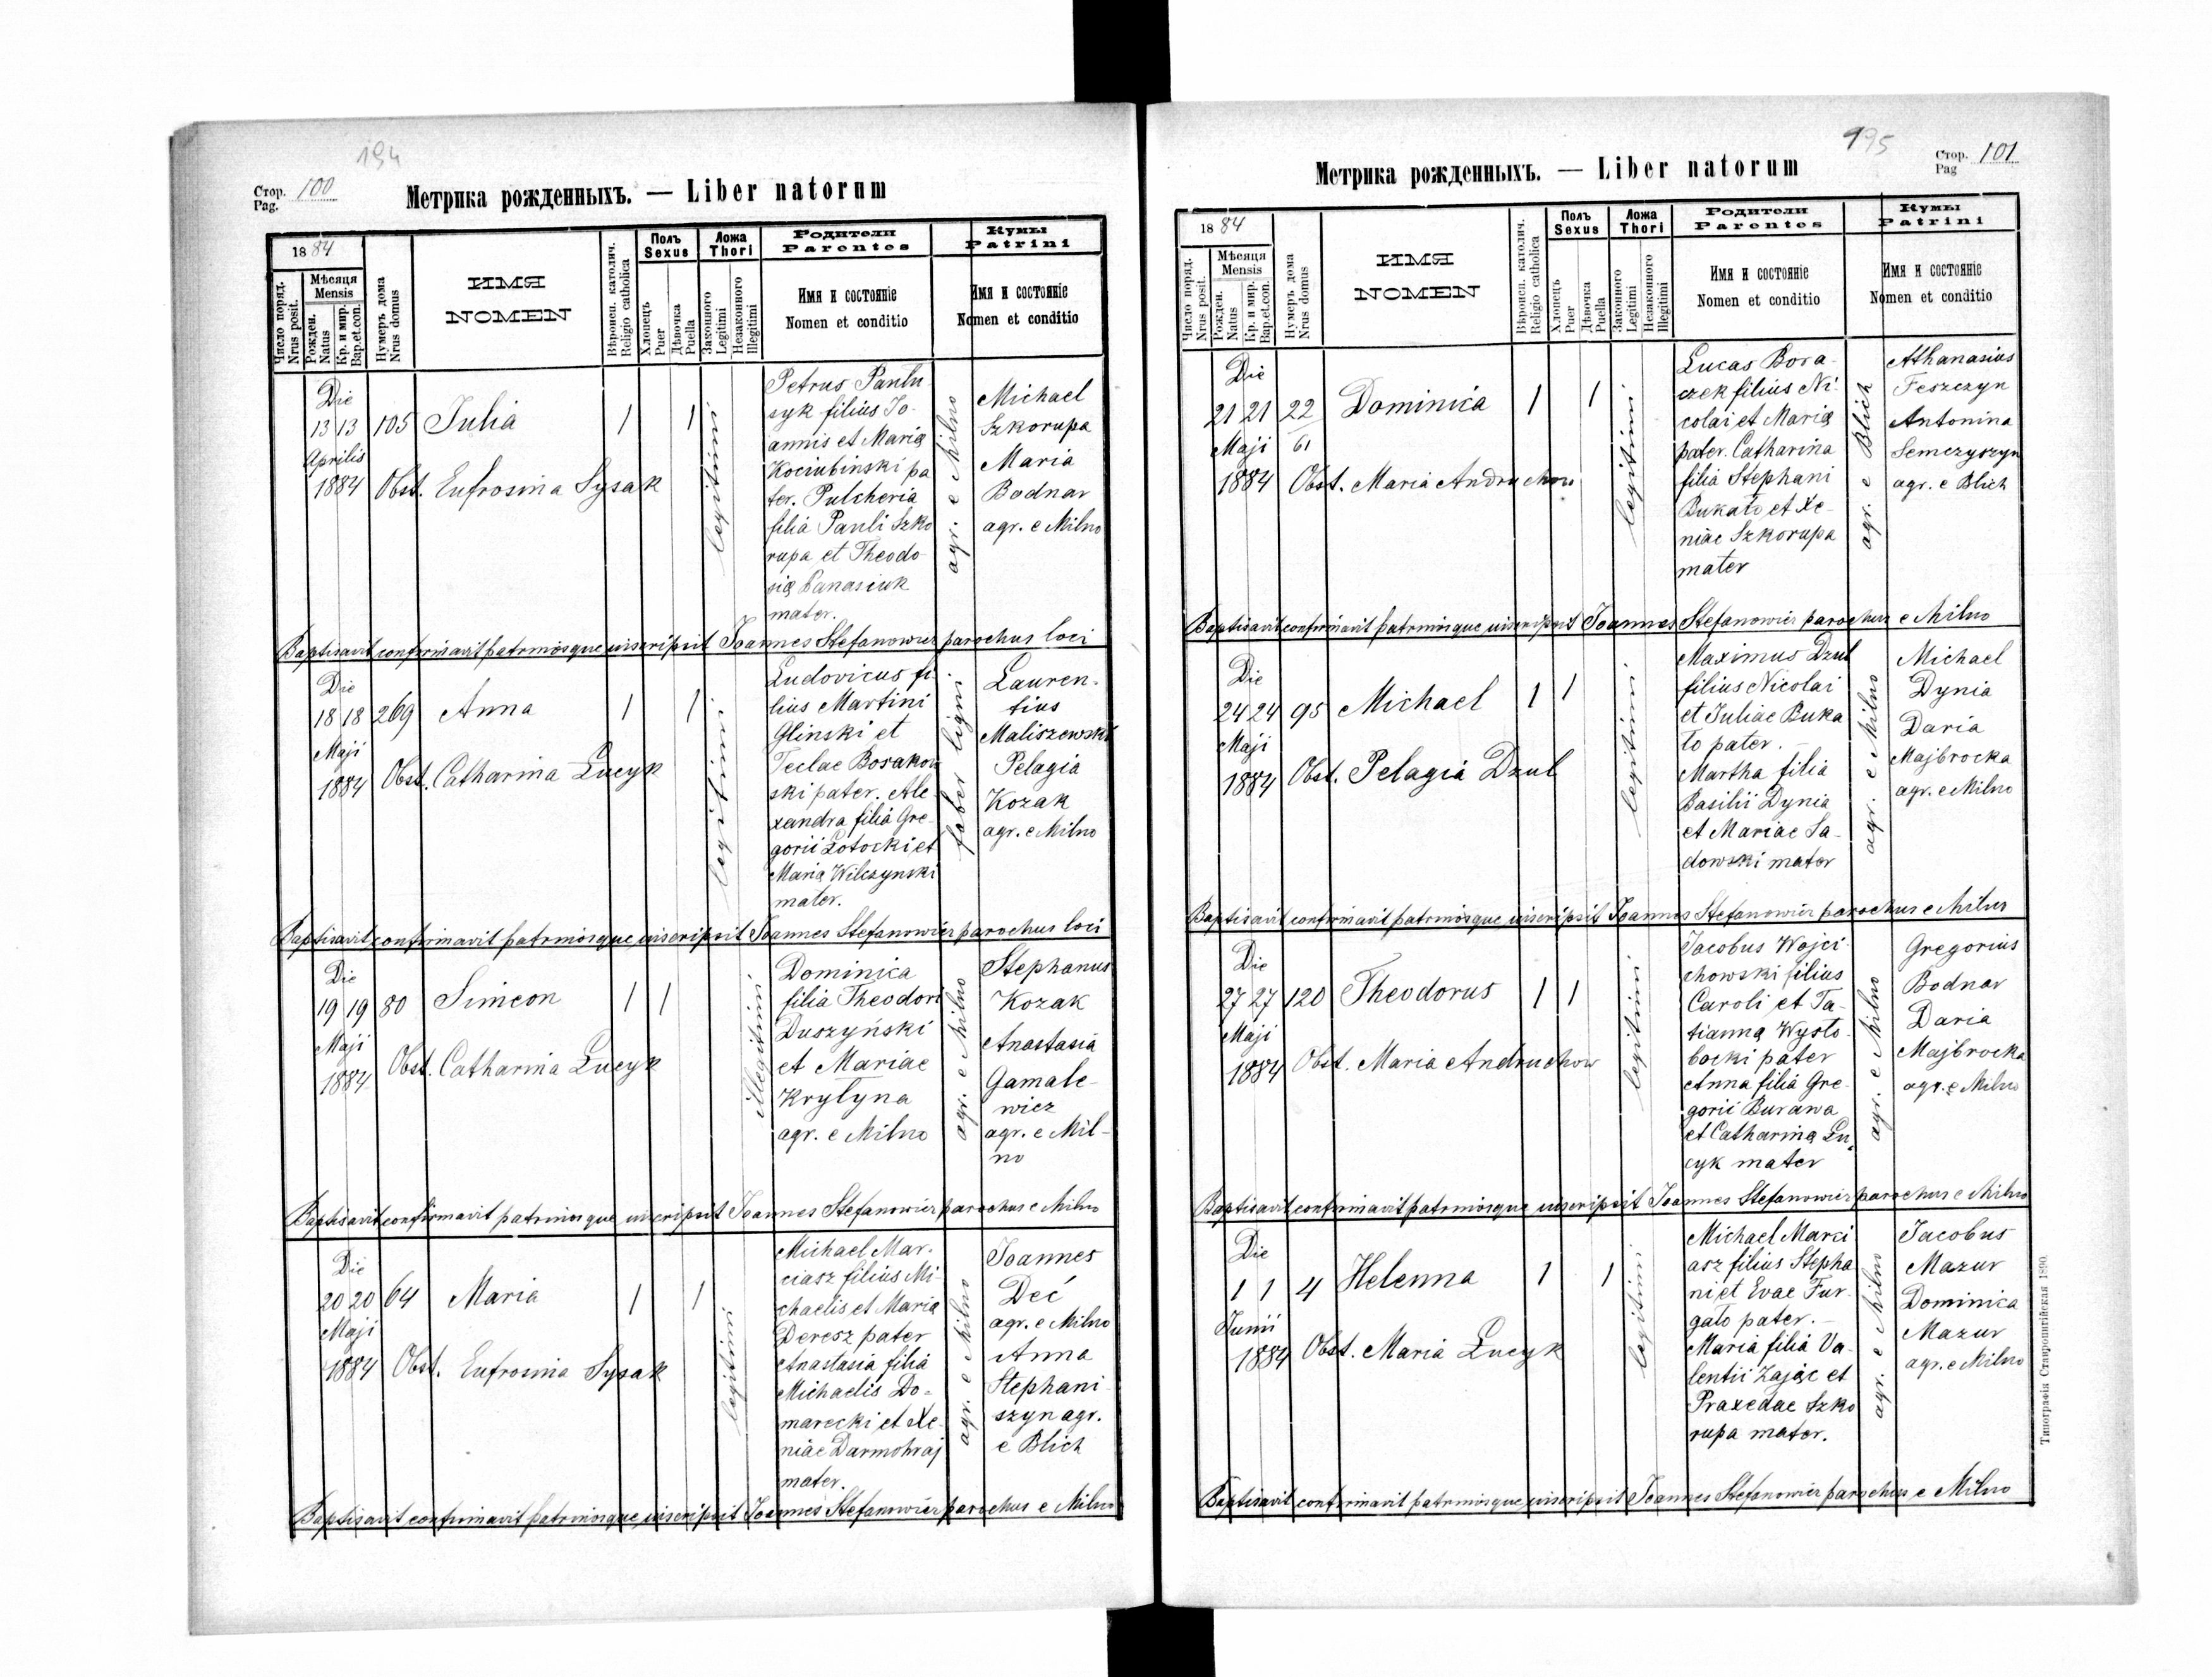 194
Стор. 100
Pag.
Метрика рожденныхъ. — Liber natorum
1884
Число поряд.
Nrus posit.
Мѣсяця
Mensis
Рожден.
Natus
Кр. и мир.
Bap.et.con.
Нумеръ дома
Nrus domus
ИМЯ
NOMEN
Вѣроисп. католич.
Religio catholica
Полъ
Sexus
Хлопецъ
Puer
Дѣвочка
Puella
Ложа
Thori
Законного
Legitimi
Незаконного
Illegitimi
Родители
Parentes
Имя и состояніе
Nomen et conditio
Кумы
Patrini
Имя и состояніе
Nomen et conditio
Die
13 13 105 Julia 1 1
Aprilis
1884 Obst. Eufrosina Sysak
legitimi
Petrus Pantu
syk filius Jo-
annis et Maria
Kociubinski pa
ter. Pulcheria
filia Pauli Szko
rupa et Theodo
sia Panasiuk
mater.
agr. e Milno
Michael
Szkorupa
Maria
Bodnar
agr. e Milno
Baptisavit confirmavit patrinosque inscripsit Joannes Stefanowicz parochus loci
Die
18 18 269 Anna 1 1
Maji
1884 Obst. Catharina Lucyk
legitimi
Ludovicus fi-
lius Martini
Glinski et
Teclae Bosakow
ski pater. Ale-
xandra filia Gre-
gorii Zotocki et
Maria Wilczynski
mater.
faber ligni
Lauren-
tius
Maliszewski
Pelagia
Kozak
agr. e Milno
Baptisavit confirmavit patrinosque inscripsit Joannes Stefanowicz parochus loci
Die
19 19 80 Simeon 1 1
Maji
1884 Obst. Catharina Lucyk
illegitimi
Dominica
filia Theodori
Duszyński
et Mariae
Krytyna
agr. e Milno
agr. e Milno
Stephanus
Kozak
Anastasia
Gamale-
wicz
agr. e Mil-
no
Baptisavit confirmavit patrinosque inscripsit Joannes Stefanowicz parochus e Milno
Die
20 20 64 Maria 1 1
Maji
1884 Obst. Eufrosina Sysak
legitimi
Michael Mar-
ciasz filius Mi-
chaelis et Maria
Deresz pater
Anastasia filia
Michaelis Do-
marecki et Xe-
niae Darmohraj
mater.
agr. e Milno
Joannes
Deć
agr. e Milno
Anna
Stephani
szyn agr.
e Blich
Baptisavit confirmavit patrinosque inscripsit Joannes Stefanowicz parochus e Milno
195
Стор. 101
Pag
Метрика рожденныхъ. — Liber natorum
1884
Число поряд.
Nrus posit.
Мѣсяця
Mensis
Рожден.
Natus
Кр. и мир.
Bap.et.con.
Нумеръ дома
Nrus domus
ИМЯ
NOMEN
Вѣроисп. католич.
Religio catholica
Полъ
Sexus
Хлопецъ
Puer
Дѣвочка
Puella
Ложа
Thori
Законного
Legitimi
Незаконного
Illegitimi
Родители
Parentes
Имя и состояніе
Nomen et conditio
Кумы
Patrini
Имя и состояніе
Nomen et conditio
Die
21 21 22 Dominica 1 1
Maji 61
1884 Obst. Maria Andruchow
legitimi
Lucas Bora-
czek filius Ni-
colai et Maria
pater. Catharina
filia Stephani
Bukato et Xe-
niae Szkorupa
mater
agr. e Blich
Athanasius
Feszczyn
Antonina
Semczyszyn
agr. e Blich
Baptisavit confirmavit patrinosque inscripsit Joannes Stefanowicz parochus e Milno
Die
24 24 95 Michael 1 1
Maji
1884 Obst. Pelagia Dzul
legitimi
Maximus Dzul
filius Nicolai
et Juliae Buka
to pater.
Martha filia
Basilii Dynia
et Mariae Sa-
dowski mater
agr. e Milno
Michael
Dynia
Daria
Majbrocka
agr. e Milno
Baptisavit confirmavit patrinosque inscripsit Joannes Stefanowicz parochus e Milno
Die
27 27 120 Theodorus 1 1
Maji
1884 Obst. Maria Andruchow
legitimi
Jacobus Wojci
chowski filius
Caroli et Ta-
tianna Wysto-
bocki pater
Anna filia Gre-
gorii Burawa
et Catharina Lu-
cyk mater
agr. e Milno
Gregorius
Bodnar
Daria
Majbrocka
agr. e Milno
Baptisavit confirmavit patrinosque inscripsit Joannes Stefanowicz parochus e Milno
Die
1 1 4 Helenna 1 1
Junii
1884 Obst. Maria Lucyk
legitimi
Michael Marci
asz filius Stepha
ni et Evae Fur-
gato pater.-
Maria filia Va-
lentii Zając et
Praxedae Szko
rupa mater.
agr. e Milno
Jacobus
Mazur
Dominica
Mazur
agr. e Milno
Baptisavit confirmavit patrinosque inscripsit Joannes Stefanowicz parochus e Milno
Типографія Ставропигійская 1890.